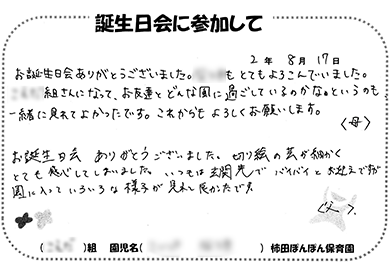 誕生日会に参加して
2年 8月17日
お誕生日会ありがとうございました。 もとてもよろこんでいました。
組さんになって、お友達とどんな風に過ごしているのかな。というのも
一緒に見れてよかったです。これからもよろしくお願いします。
〈母〉
お誕生日会 ありがとうございました。切り絵の芸が細かく
とても感心してしまいました。いつもは玄関先でバイバイとお迎えですが
園に入っていろいろな様子が見れて良かったです。
(父)
( )組 園児名( ) 柿田ぽんぽん保育園